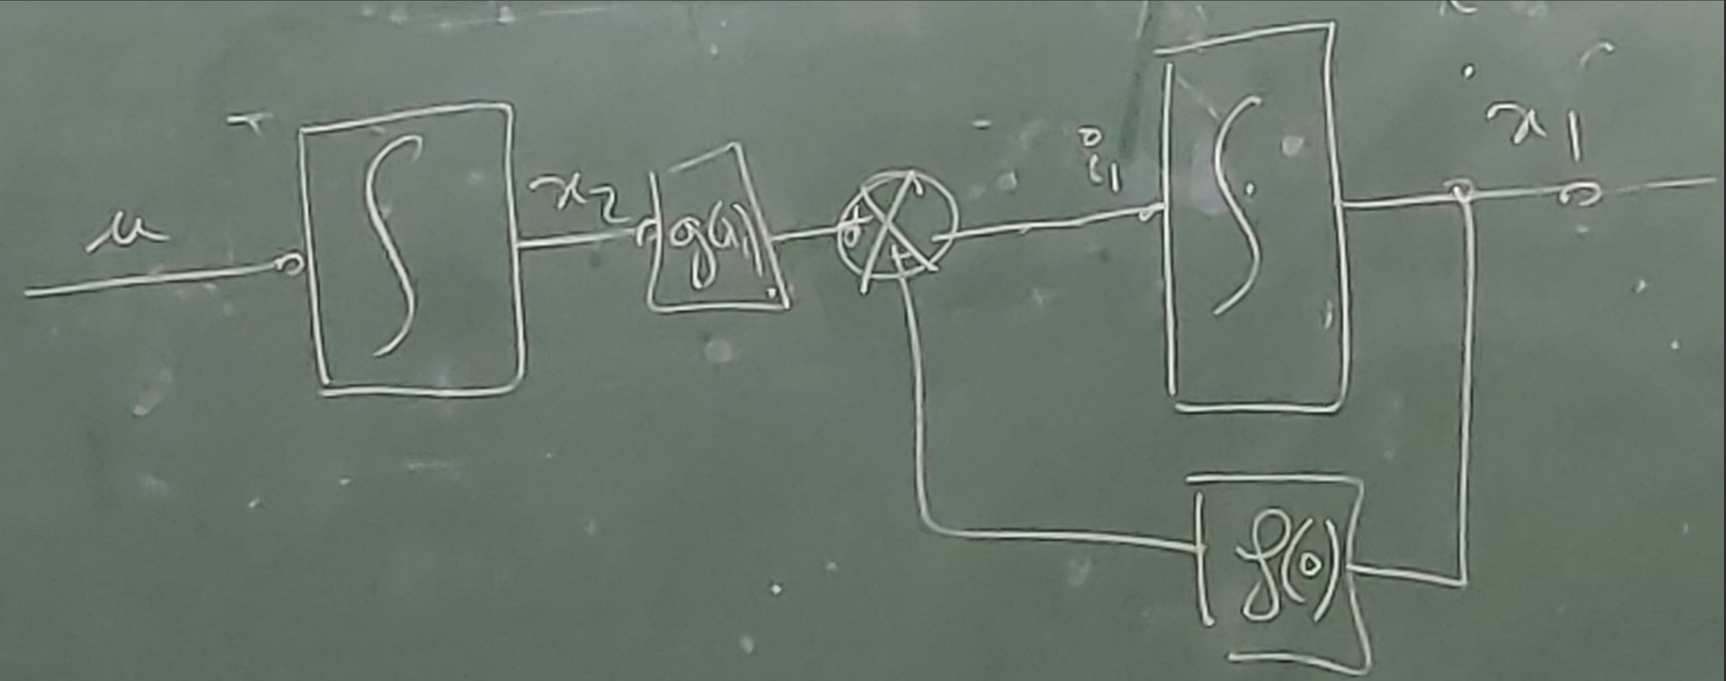 u
∫
x₂
g(x₁)
+
+
ẋ₁
∫
x₁
f(·)